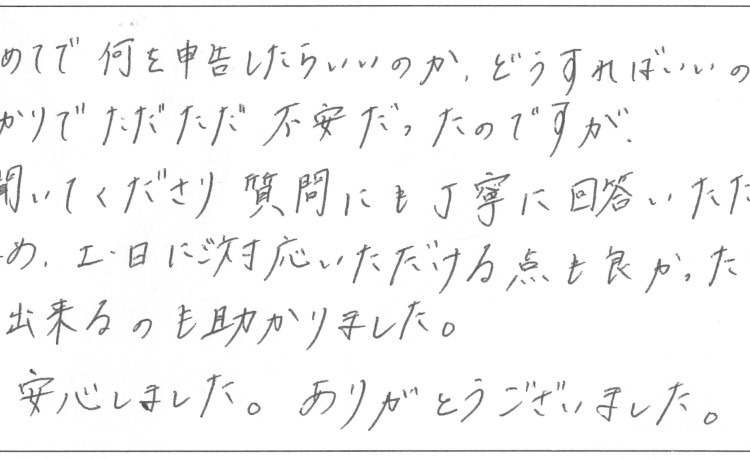 めてで何を申告したらいいのか、どうすればいいの
かりでただただ不安だったのですが、
聞いてくださり質問にも丁寧に回答いただ
め、土・日にご対応いただける点も良かった
出来るのも助かりました。
安心しました。ありがとうございました。